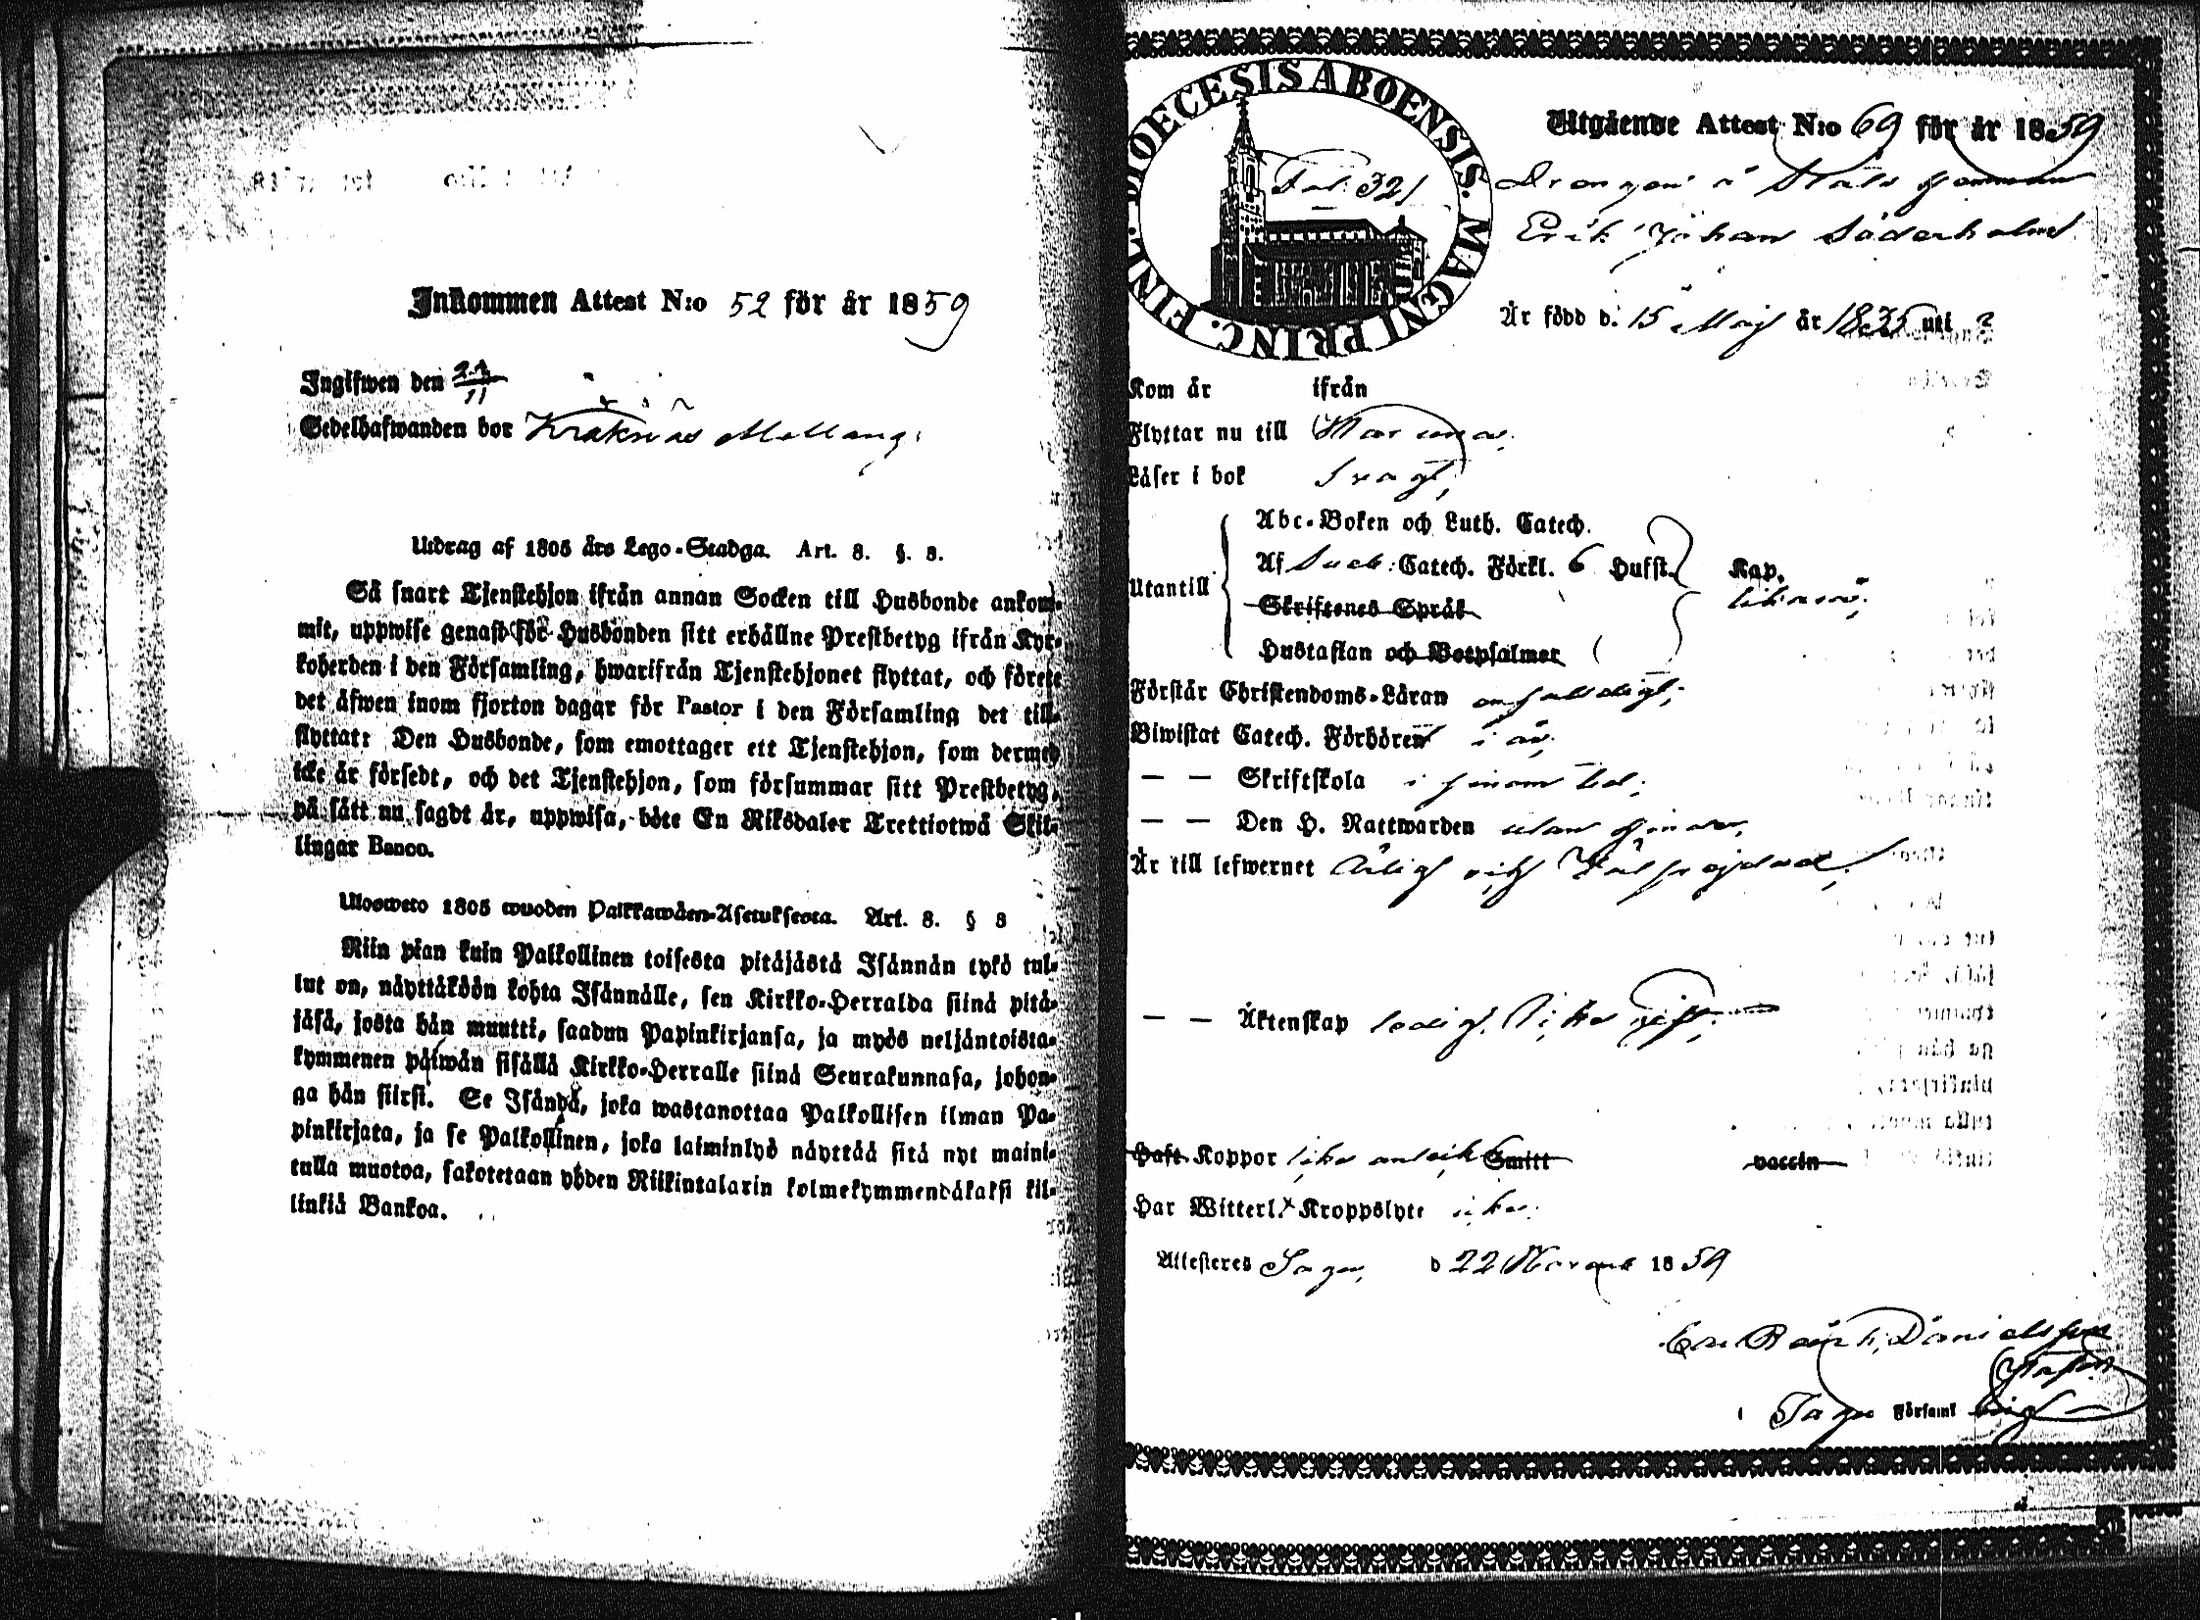 Inkommen Attest N:o 52 för år 1859
Ingifwen den 23/11
Sedelhafwanden bor Kråknäs Mellang.
Utdrag af 1805 års Lego-Stadga. Art. 8. §. 8.
Så snart Tjenstehjon ifrån annan Socken till Husbonde ankom-
mit, uppwise genast för Husbonden sitt erhållne Prestbetyg ifrån Kyr-
koherden i den Församling, hwarifrån Tjenstehjonet flyttat, och förete
det äfwen inom fjorton dagar för Pastor i den Församling det till-
flyttat: Den Husbonde, som emottager ett Tjenstehjon, som dermed
icke är försedt, och det Tjenstehjon, som försummar sitt Prestbetyg,
på sätt nu sagdt är, uppwisa, böte En Riksdaler Trettiotwå Skil-
lingar Banco.
Ulosweto 1805 wuoden Palkkawäen-Asetuksesta. Art. 8. § 8
Niin pian kuin Palkollinen toisesta pitäjästä Isännän tykö tul-
lut on, näyttäköön kohta Isännälle, sen Kirkko-Herralda siinä pitä-
jäsä, josta hän muutti, saadun Papinkirjansa, ja myös neljäntoista-
kymmenen päiwän sisällä Kirkko-Herralle siinä Seurakunnasa, johon-
ga hän siirsi. Se Isändä, joka wastanottaa Palkollisen ilman Pa-
pinkirjata, ja se Palkollinen, joka laiminlyö näyttää sitä nyt maini-
tulla muotoa, sakotetaan yhden Riikintalarin kolmekymmendäkaksi kil-
linkiä Bankoa.
DIOECESIS ABOENSIS. MAGNI PRINC. FINL.
Fol. 321
Utgående Attest N:o 69 för år 1859
Drengen å Stals
Erik Johan Söderholm
Är född d. 15 Maij år 1835 uti ?
Kom år ifrån
Flyttar nu till
Läser i bok Svagt,
Utantill
Abc-Boken och Luth. Catech.
Af Sveb: Catech. Förkl. 6 Hufst. Kap.
Skriftenes Språk likaså;
Hustaflan och Botpsalmer
Förstår Christendoms-Läran enfaldigt;
Biwistat Catech. Förhören i år;
— — Skriftskola i sinom tid;
— — Den H. Nattwarden utan hinder,
Är till lefwernet ärlig och välfrejdad;
— — Äktenskap ledig. Icke gift;
Haft Koppor icke anteckn. Smitt vaccin
Har Witterl. Kroppslyte icke.
Attesteras Sagu, d 22 Novemb 1859
Danielsson
i Sagu Församl